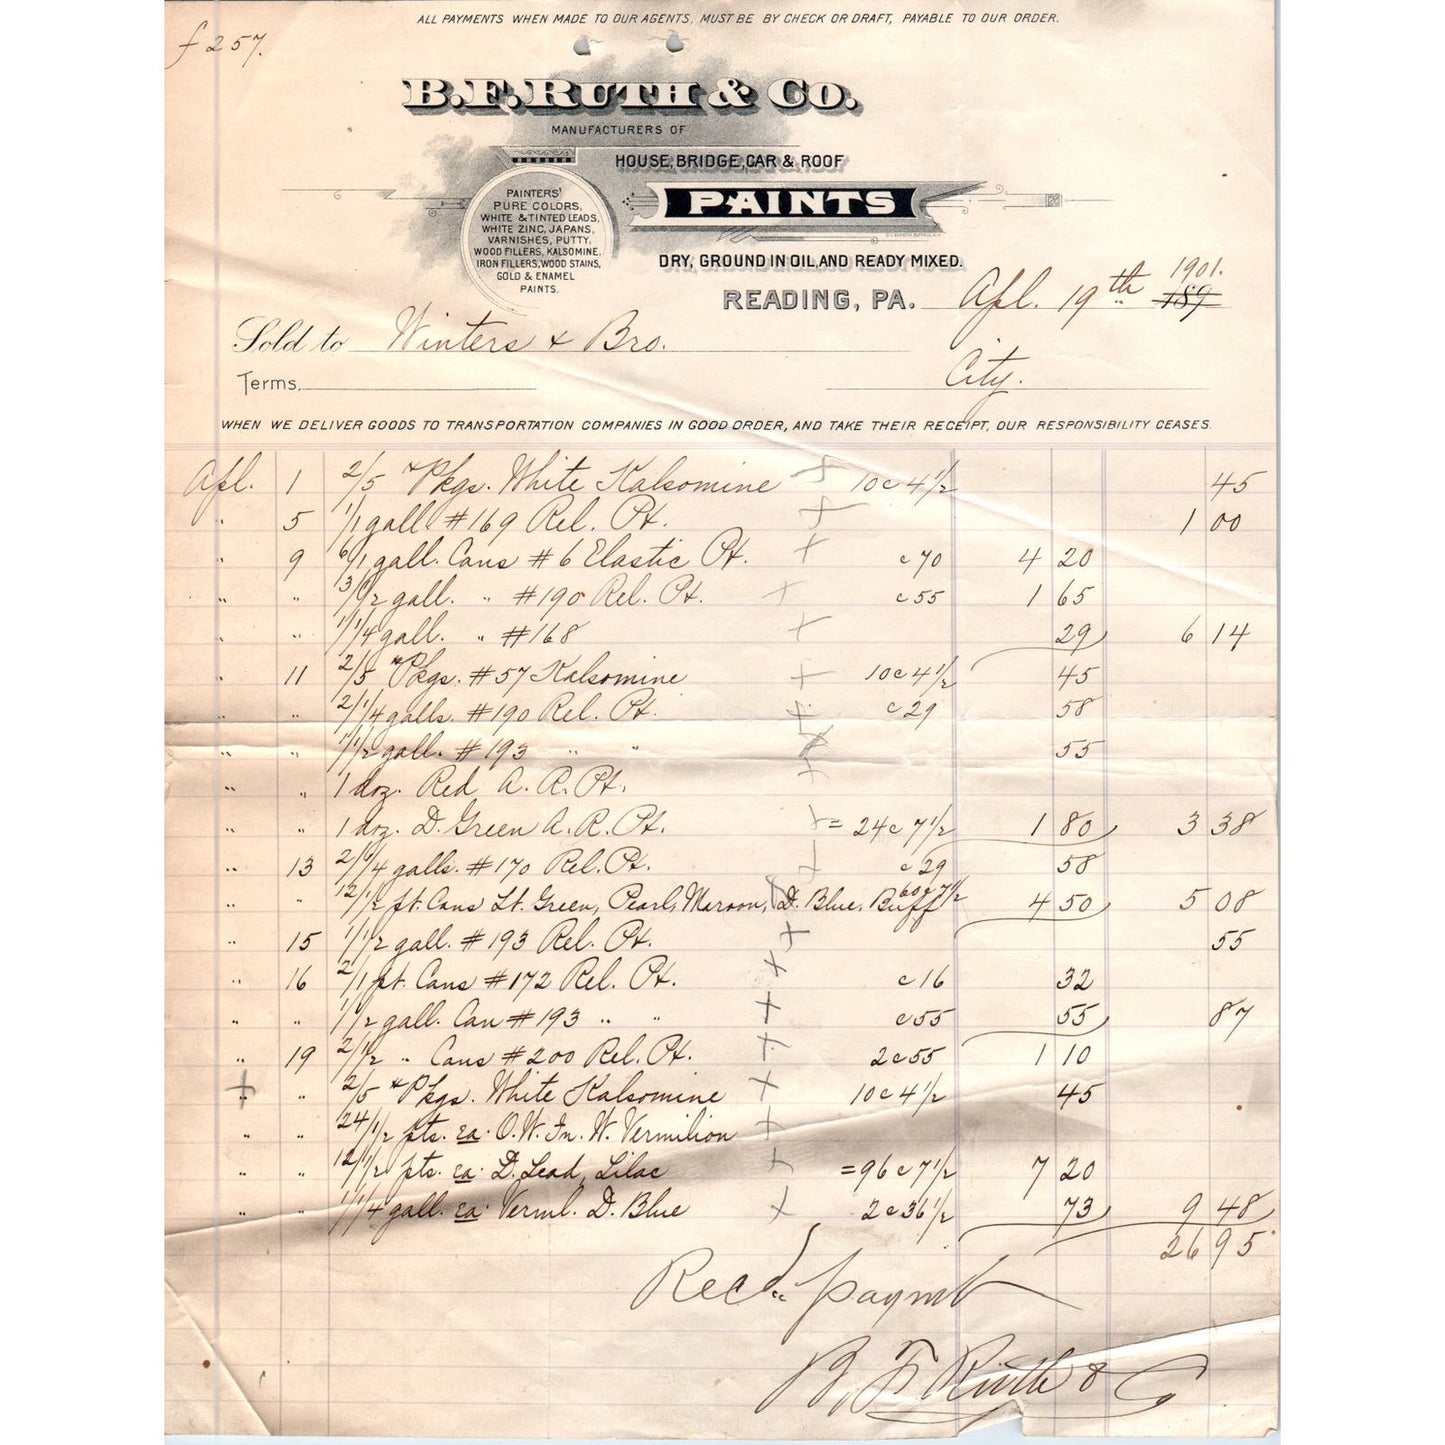 ALL PAYMENTS WHEN MADE TO OUR AGENTS, MUST BE BY CHECK OR DRAFT, PAYABLE TO OUR ORDER.
f 257.
B.F. RUTH & CO.
MANUFACTURERS OF
HOUSE, BRIDGE, CAR & ROOF
PAINTS
PAINTERS'
PURE COLORS,
WHITE & TINTED LEADS,
WHITE ZINC, JAPANS,
VARNISHES, PUTTY,
WOOD FILLERS, KALSOMINE,
IRON FILLERS, WOOD STAINS,
GOLD & ENAMEL
PAINTS.
DRY, GROUND IN OIL, AND READY MIXED.
READING, PA. Apl. 19th 1901. 189
Sold to Winters & Bro.
Terms, City.
WHEN WE DELIVER GOODS TO TRANSPORTATION COMPANIES IN GOOD ORDER, AND TAKE THEIR RECEIPT, OUR RESPONSIBILITY CEASES.
Apl. 1 2/5 # Pkgs. White Kalsomine 10 c 4 1/2 45
" 5 1/1 gall #169 Rel. Pt. 1 00
" 9 6/1 gall. Cans #6 Elastic Pt. c 70 4 20
" " 3/1/2 gall. " #190 Rel. Pt. c 55 1 65
" " 1/1/4 gall. " #168 29 6 14
" 11 2/5 # Pkgs. #57 Kalsomine 10 c 4 1/2 45
" " 2/1/4 galls. #190 Rel. Pt. c 29 58
" " 1/1/2 gall. #193 " " 55
" " 1 doz. Red A. R. Pt.
" " 1 doz. D. Green A. R. Pt. = 24 c 7 1/2 1 80 3 38
" 13 2/1/4 galls. #170 Rel. Pt. c 29 58
" " 12/1/2 pt. Cans Lt. Green, Pearl, Maroon, D. Blue, Buff 60 c 7 1/2 4 50 5 08
" 15 1/1/2 gall. #193 Rel. Pt. 55
" 16 2/1 pt. Cans #172 Rel. Pt. c 16 32
" " 1/1/2 gall. Can #193 " " c 55 55 87
" 19 2/1/2 " Cans #200 Rel. Pt. 2 c 55 1 10
" " 2/5 # Pkgs. White Kalsomine 10 c 4 1/2 45
" " 24/1/2 pts. ea. O. W. In. W. Vermilion
" " 12/1/2 pts. ea. D. Lead, Lilac = 96 c 7 1/2 7 20
" " 1/1/4 gall. ea. Verml. D. Blue 2 c 36 1/2 73 9 48
26 95
Recd. paymt
B. F. Ruth & Co